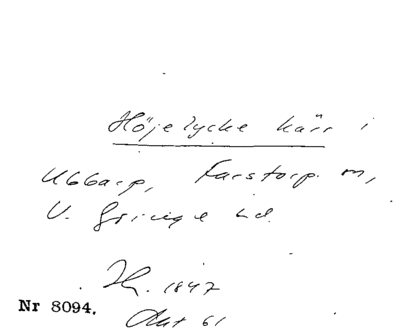 Höjelycke kärr i
Ubbarp, Farstorp. m,
V. Göinge hd.
H. 1847
Akt 61
Nr 8094.